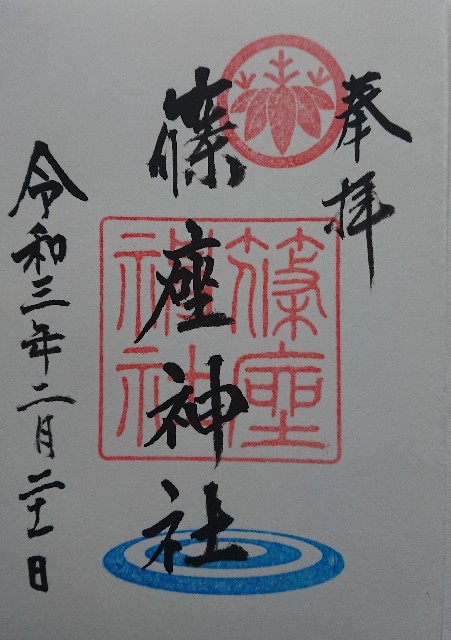 奉拝
篠座神社
篠座神社
令和三年二月二十一日